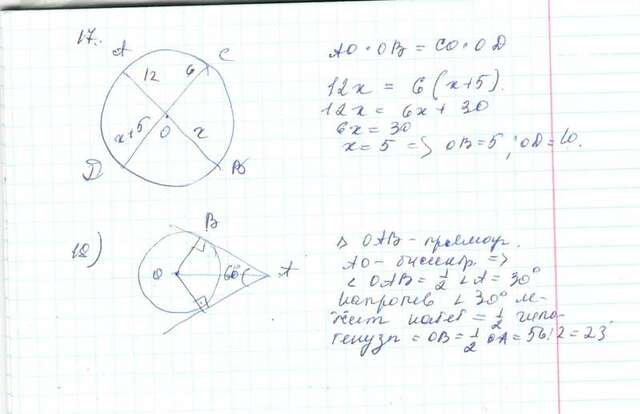 17.
A
C
12
6
x+5
O
x
D
B
AO · OB = CO · OD
12x = 6(x+5).
12x = 6x + 30
6x = 30
x = 5 => OB=5; OD=10.
18)
B
O
60°
A
△ OAB - прямоуг.
AO - биссектр =>
∠ OAB = 1/2 ∠A = 30°
Напротив ∠ 30° ле-
жит катет = 1/2 гипо-
тенузы = OB = 1/2 OA = 56:2 = 23